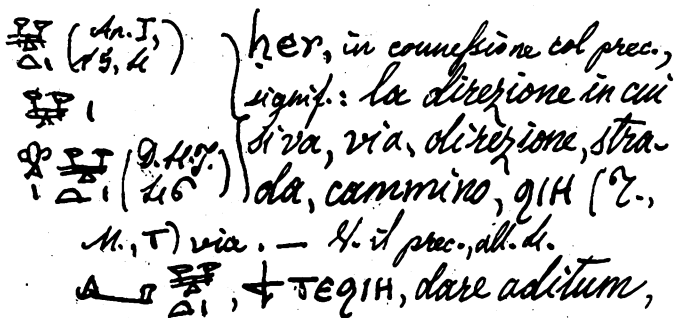 𓈐𓏏𓏤 (An. I, her, in conneſsione col prec.,
signif.: la direzione in cui
𓈐𓏤 si va, via, direzione, stra-
𓁷𓏤𓈐𓏏𓏤 (D.H.J. da, cammino, ϩⲓⲏ (
M., T) via. — V. il prec., all.
𓈐𓏏𓏤, ϯ ⲧⲉϩⲓⲏ, dare aditum,